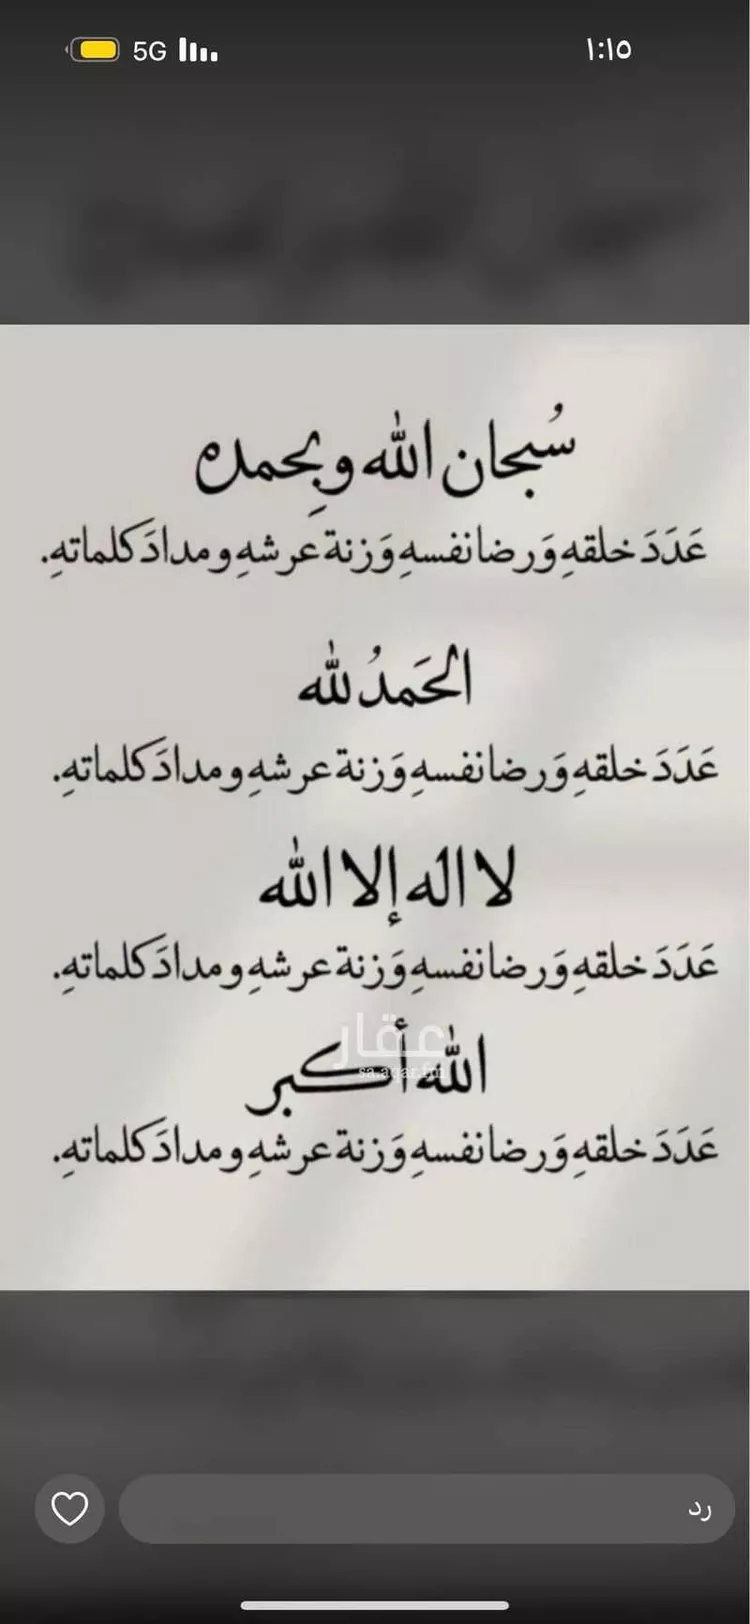 5G ١:١٥
سُبحان الله وبِحمده
عَدَدَ خلقهِ وَرضا نفسهِ وَزنة عرشهِ ومدادَ كلماتهِ.
الحَمدُ لله
عَدَدَ خلقهِ وَرضا نفسهِ وَزنة عرشهِ ومدادَ كلماتهِ.
لا اله إلا الله
عَدَدَ خلقهِ وَرضا نفسهِ وَزنة عرشهِ ومدادَ كلماتهِ.
عقار
الله أكبر
sa.aqar.fm
عَدَدَ خلقهِ وَرضا نفسهِ وَزنة عرشهِ ومدادَ كلماتهِ.
رد